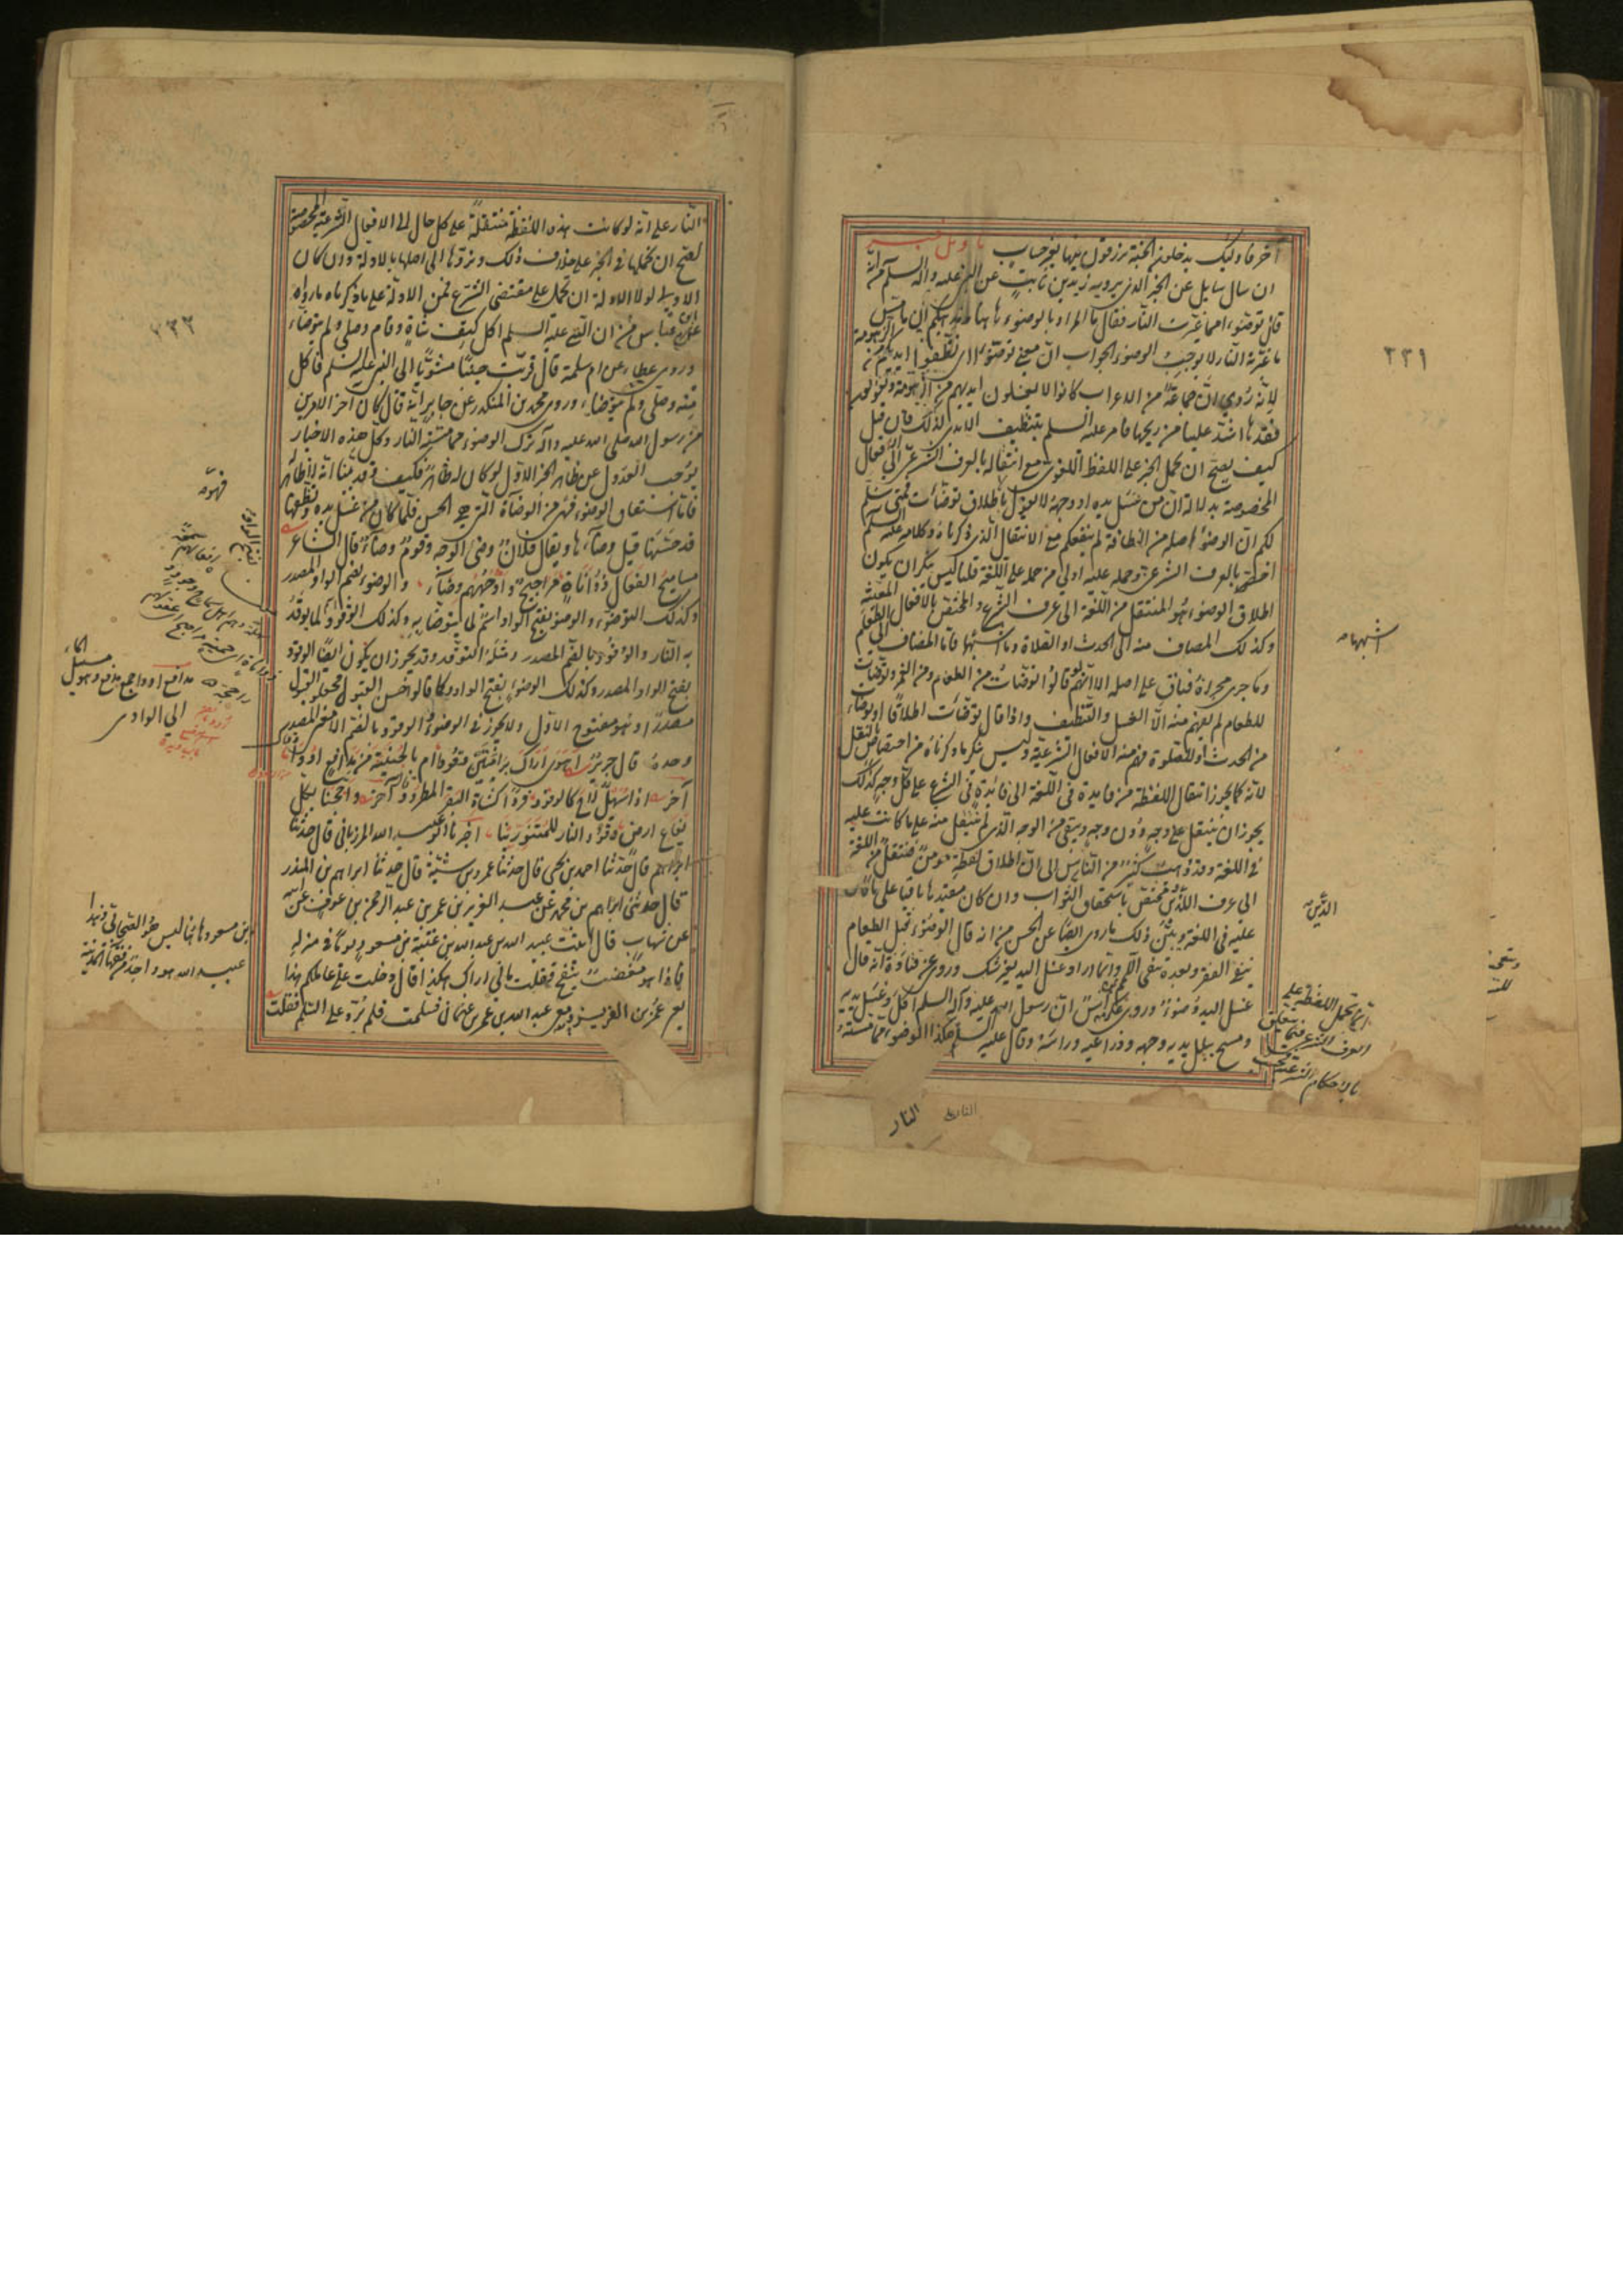 آخر فاولئك يدخلون الجنة يرزقون فيها بغير حساب تاويل خبر
ان سال سايل عن الخبر الذى يرويه زيد بن ثابت عن النبى عليه واله السلم انه
قال توضوا مما غيرت النار فقال ما المراد بالوضوء هاهنا ومذهبكم ان مس
ما غيرته النار لا يوجب الوضوء الجواب ان معنى توضوا اى نظفوا ايديكم من الزهومة
لانه روى ان جماعة من الاعراب كانوا لا يغسلون ايديهم من الزهومة ويقولون
فقدها اشد علينا من ريحها فامر عليه السلم بتنظيف الايدى لذلك فان قيل
كيف يصح ان تحمل الخبر على اللفظ اللغوى مع انتقاله بالعرف الشرعى الى الافعال
المخصوصة بدلالة ان من غسل يده او وجهه لا يقول باطلاق توضات فمتى سلم
لكم ان الوضوء اصله من النظافة لم ينفعكم مع الانتقال الذى ذكرناه وكلامه عليه السلم
اخص بالعرف الشرعى وحمله عليه اولى من حمله على اللغة قلنا ليس ننكر ان يكون
اطلاق الوضوء هو المنتقل من اللغة الى عرف الشرع والمختص بالافعال المعينة
وكذلك المضاف منه الى الحدث او الصلاة وما اشبهها فاما المضاف الى الطعام
وما جرى مجراه فباق على اصله الا ترى انهم لو قالوا توضات من الطعام ومن الغمر وتوضات
للطعام لم يفهم منه الا الغسل والتنظيف واذا قال توضات اطلاقا او توضات
من الحدث او للصلوة فهم منه الافعال الشرعية وليس ننكر ما ذكرناه من اختصاص النقل
لانه كما يجوز انتقال اللفظة من فايدة فى اللغة الى فائدة فى الشرع على كل وجه كذلك
يجوز ان ينتقل على وجه دون وجه ويبقى من الوجه الذى لم تنتقل منه على ما كانت عليه
فى اللغة وقد ذهب كثير من الناس الى ان اطلاق لفظة مومن منتقل من اللغة
الى عرف الدين ومختص باستحقاق الثواب وان كان مقيدها باقيا على ما كان
عليه فى اللغة ويبين ذلك ما روى ايضا عن الحسن من انه قال الوضوء قبل الطعام
ينفى الفقر وبعده ينفى اللمم وانما اراد غسل اليد بغير شك وروى عن قتادة انه قال
غسل اليد وضوء وروى عكراش ان رسول الله عليه واله السلم اكل وغسل يديه
ومسح ببلل يديه وجهه وذراعيه وراسه وقال عليه السلم هكذا الوضوء مما مسته
٢٣١
اشبههما
الدين
انما تحمل اللفظة على
العرف الشرعى فيما يتعلق
بالاحكام الشرعية
النار
النار على انه لو كانت هذه اللفظة منتقلة على كل حال الى الافعال الشرعية المخصوصة
لصح ان نحملها فى الخبر على خلاف ذلك ونردها الى اصلها بالادلة وان كان
الاولى لولا الادلة ان تحمل على مقتضى الشرع فمن الادلة على ما ذكرناه ما رواه
ابن عباس من ان النبى عليه السلم اكل كتف شاة وقام وصلى ولم يتوضا
وروى عطاء عن ام سلمة قال قربت جنبا مشويا الى النبى عليه السلم فاكل
منه وصلى ولم يتوضا وروى محمد بن المنكدر عن جابر انه قال كان اخر الامرين
من رسول الله صلى الله عليه واله ترك الوضوء مما مسته النار وكل هذه الاخبار
توجب العدول عن ظاهر الخبر الاول لو كان له ظاهر فكيف وقد بينا انه لا ظاهر له
فاما اشتقاق الوضوء فهو من الوضاة التى هى الحسن فلما كان من غسل يده ونظفها
قد حسنها قيل وضاها ويقال فلان وضئ الوجه وقوم وضاء قال الشاعر
مساميح الفعال ذووا اناة مراجيح واوجههم وضاء والوضوء بضم الواو المصدر
وكذلك التوضوء والوضوء بفتح الواو اسم لما يتوضا به وكذلك الوقود لما يوقد
به النار والوقود بالضم المصدر ومثله التوقد وقد يجوز ان يكون ايضا الوقود
بفتح الواو المصدر وكذلك الوضوء بفتح الواو كما قالوا حسن القبول فجعلوا القبول
مصدرا وهو مفتوح الاول ولا يجوز فى الوضوء والوقود بالضم الا معنى المصدر
وحده قال جرير اهوى اراك برامتين وقودا ام بالجنينة من مدافع اودا وقال
آخر اذا سهيل لاح كالوقود فردا كشاة البقر المطرود وقال آخر واججنا بكل
يفاع ارض وقود النار للمتنورينا اخبرنا ابو عبيد الله المرزبانى قال حدثنا
ابراهيم قال حدثنا احمد بن يحيى قال حدثنا عمر بن شبة قال حدثنا ابراهيم بن المنذر
قال حدثنى ابراهيم بن محمد عن عبد العزيز بن عمر بن عبد الرحمن بن عوف عن ابيه
عن شهاب قال اتيت عبيد الله بن عبد الله بن عتبة بن مسعود يوما فى منزله
فاذا هو مغضب ينفخ فقلت ما لى اراك هكذا قال دخلت على عاملكم هذا
يعنى عمر بن العزيز ومعه عبد الله بن عمر بن عثمان فسلمت فلم يرد على السلم فقلت
٢٣٢
فهو
بفتح الواو
مدافع اودا جمع مدفع وهو مسيل الماء
الى الوادى
ابن مسعود هاهنا ليس هو الصحابى وهذا
عبيد الله هو واحد من فقهاء المدينة